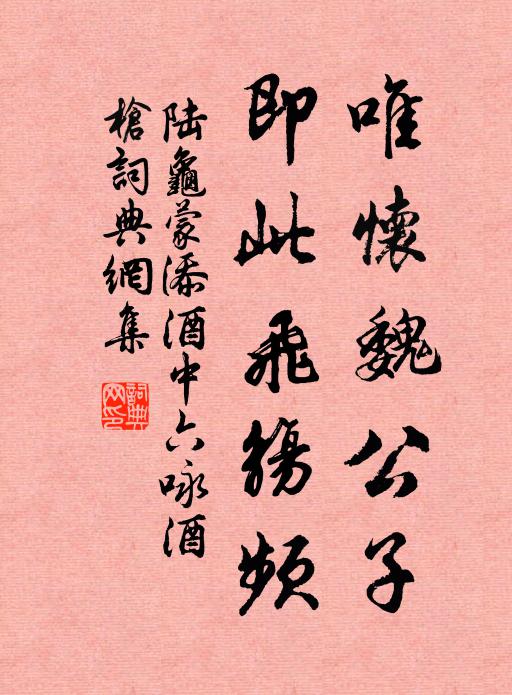 唯懷魏公子
即此飛觴頻
陸龜蒙添酒中六咏酒
槍詞典網集
詞典网印